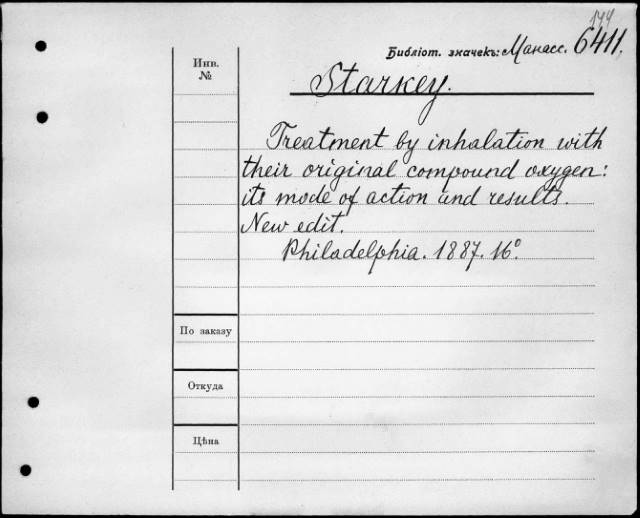 144
Библіот. значекъ: Манасс. 6411.
Инв.
№
Starkey.
Treatment by inhalation with
their original compound oxygen:
its mode of action and results.
New edit.
Philadelphia. 1887. 16°
По заказу
Откуда
Цѣна